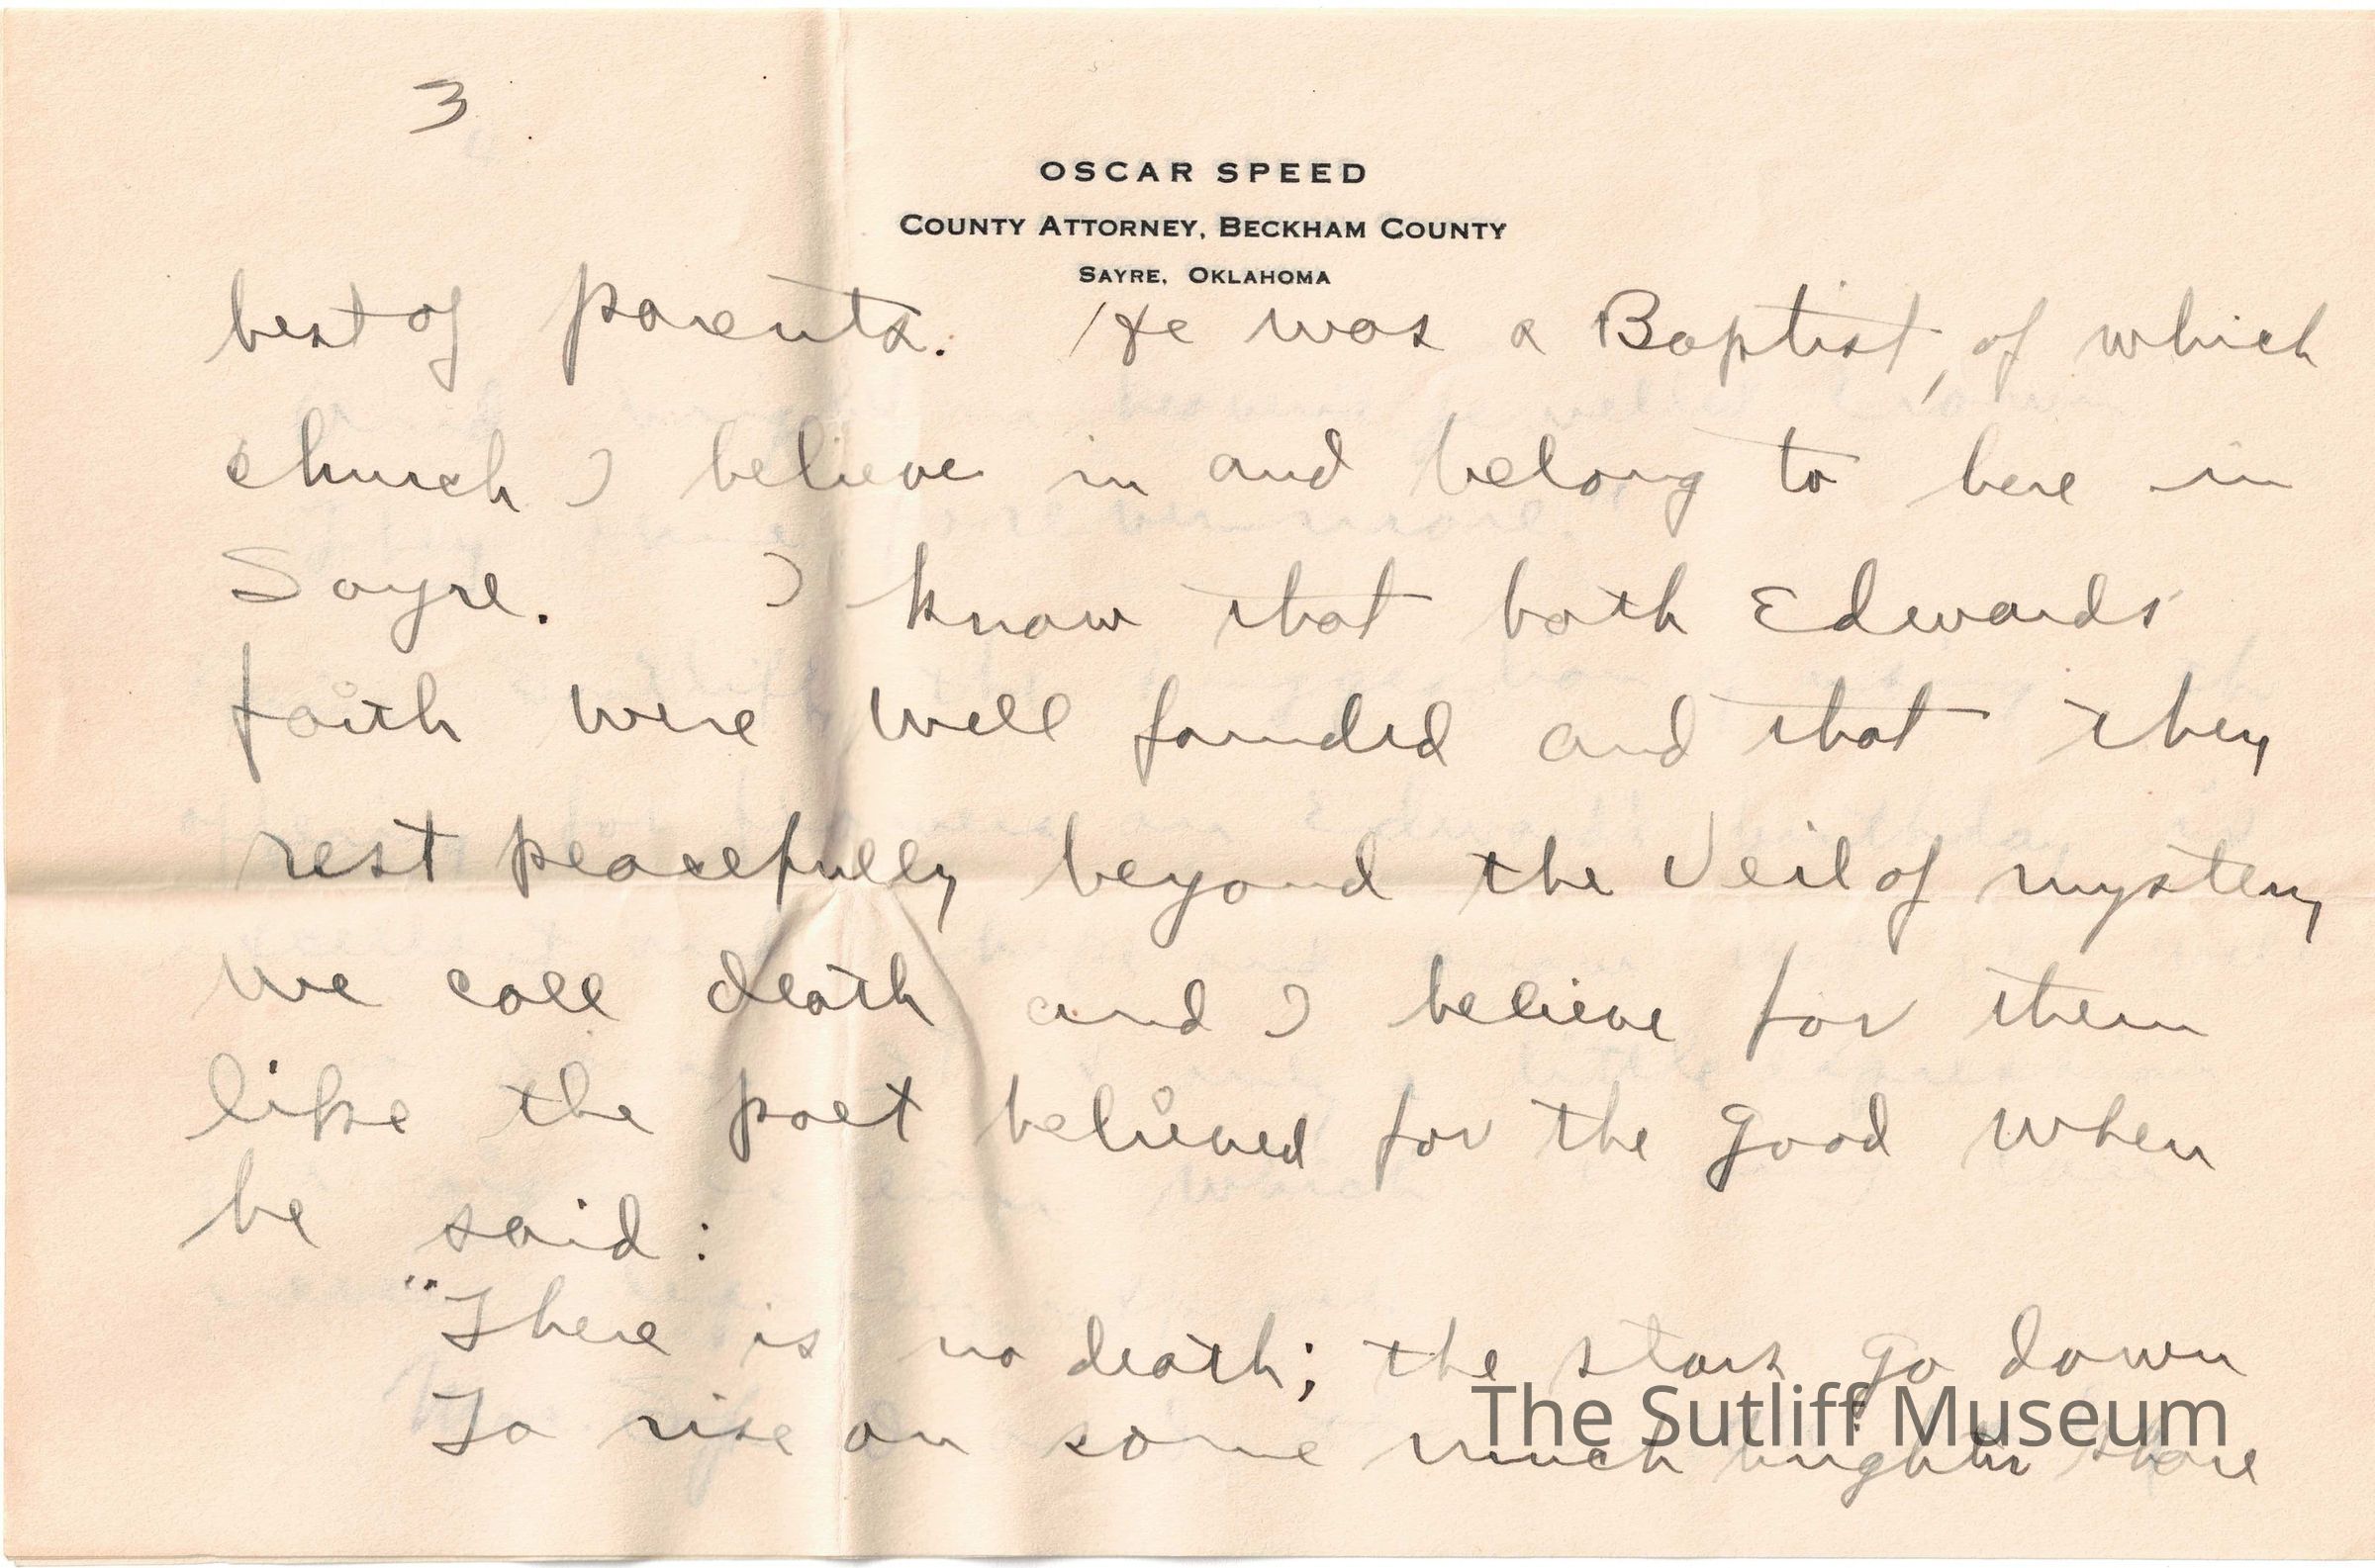 3
OSCAR SPEED
COUNTY ATTORNEY, BECKHAM COUNTY
SAYRE, OKLAHOMA
best of parents. He was a Baptist, of which
church I believe in and belong to here in
Sayre. I know that both Edwards
faith were well founded and that they
rest peacefully beyond the Veil of mystery
we call death and I believe for them
like the poet believed for the good when
he said:
"There is no death; the stars go down
To rise on some much brighter shore
The Sutliff Museum